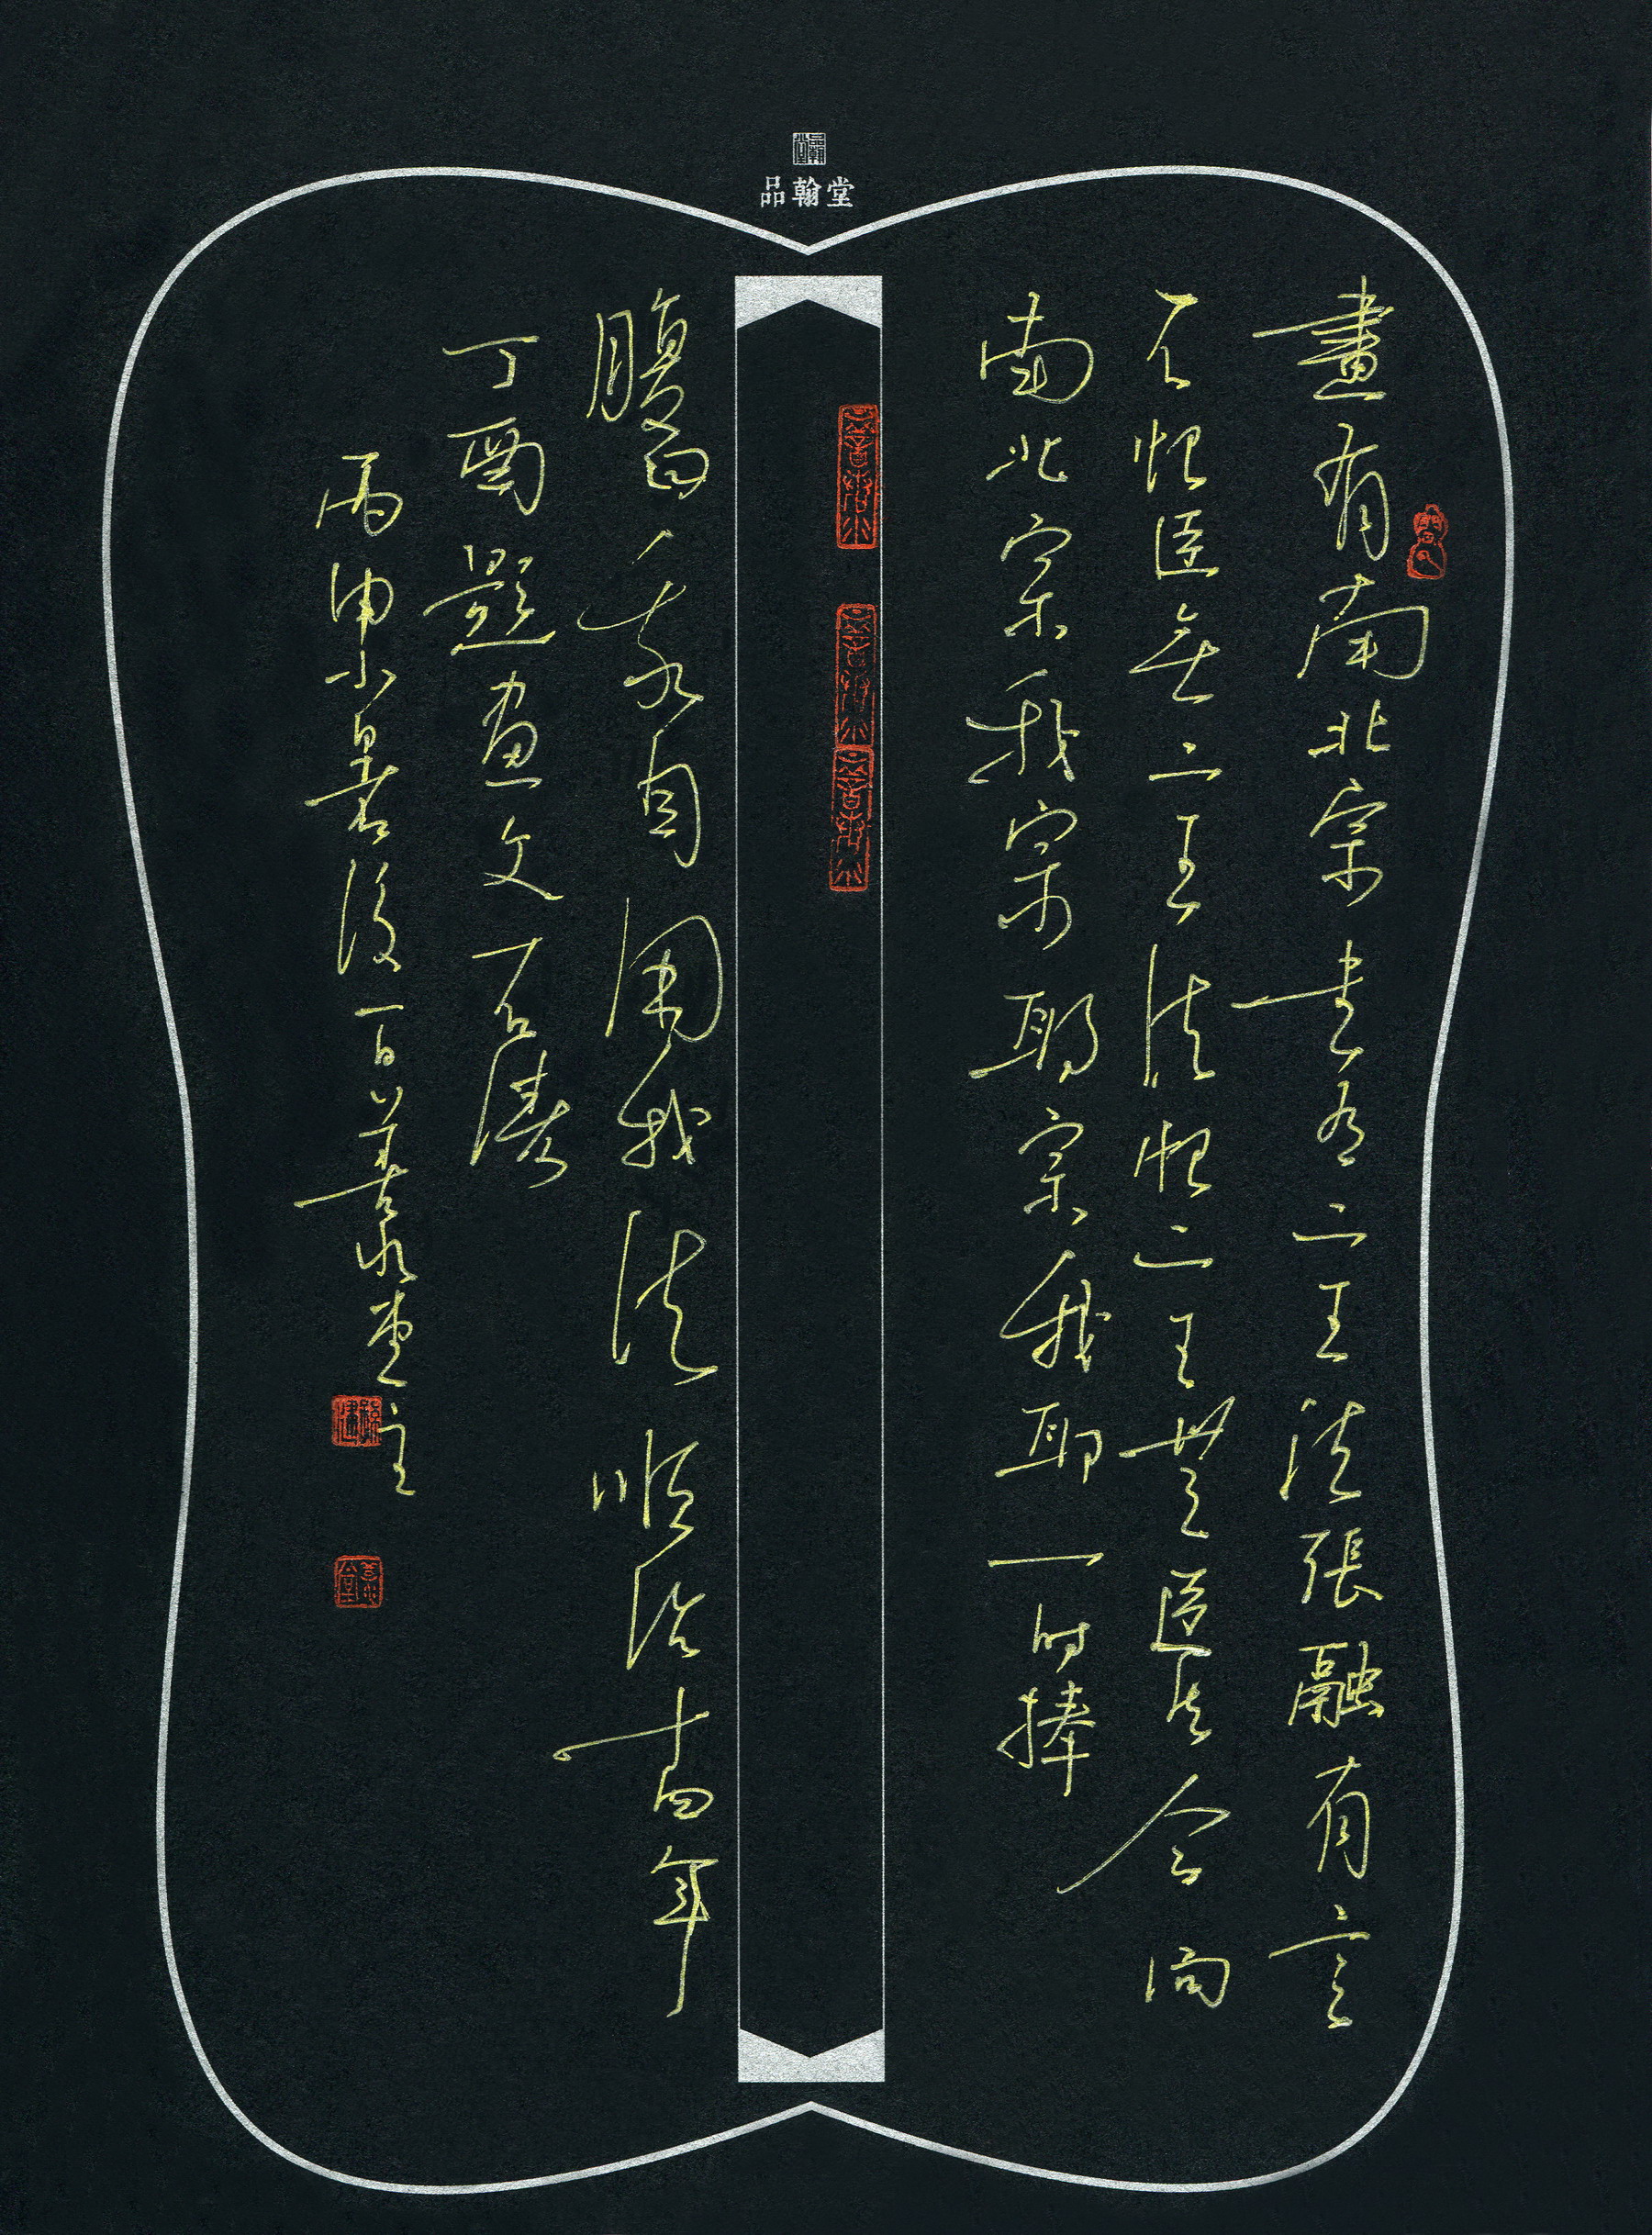 品翰堂
畫有南北宗書有二王法張融有言
不恨臣無二王法恨二王無臣法今問
南北宗我宗耶宗我耶一時捧
腹曰我自用我法順治十四年
丁酉題畫文石濤
丙申小暑後一日善水堂主